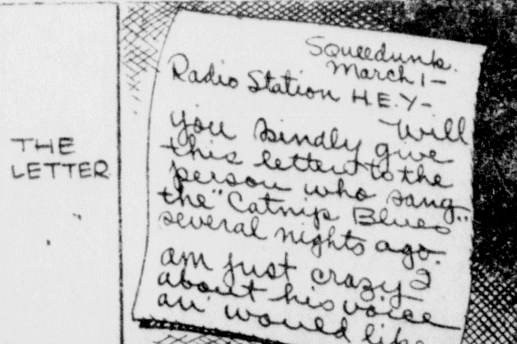 THE
LETTER
Squeedunk.
March 1-
Radio Station H.E.Y-
Will
you kindly give
this letter to the
person who sang
the "Catnip Blues"
several nights ago.
I
am just crazy
about his voice
an' would like